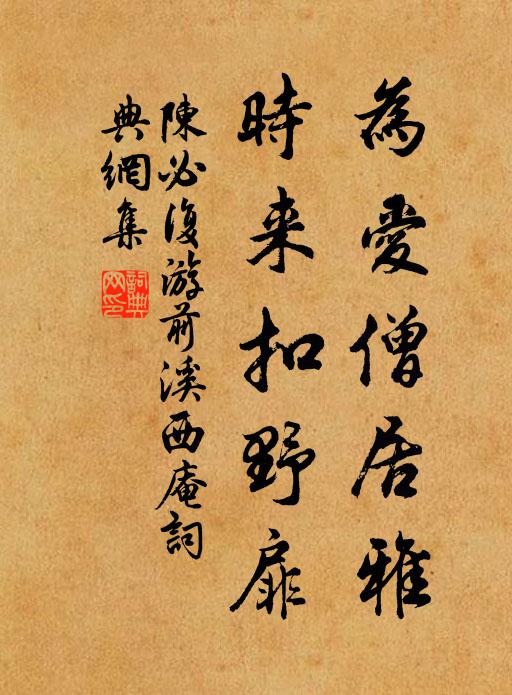 為愛僧居雅
時来扣野扉
陳必復游前溪西庵詞
典網集
詞典网印